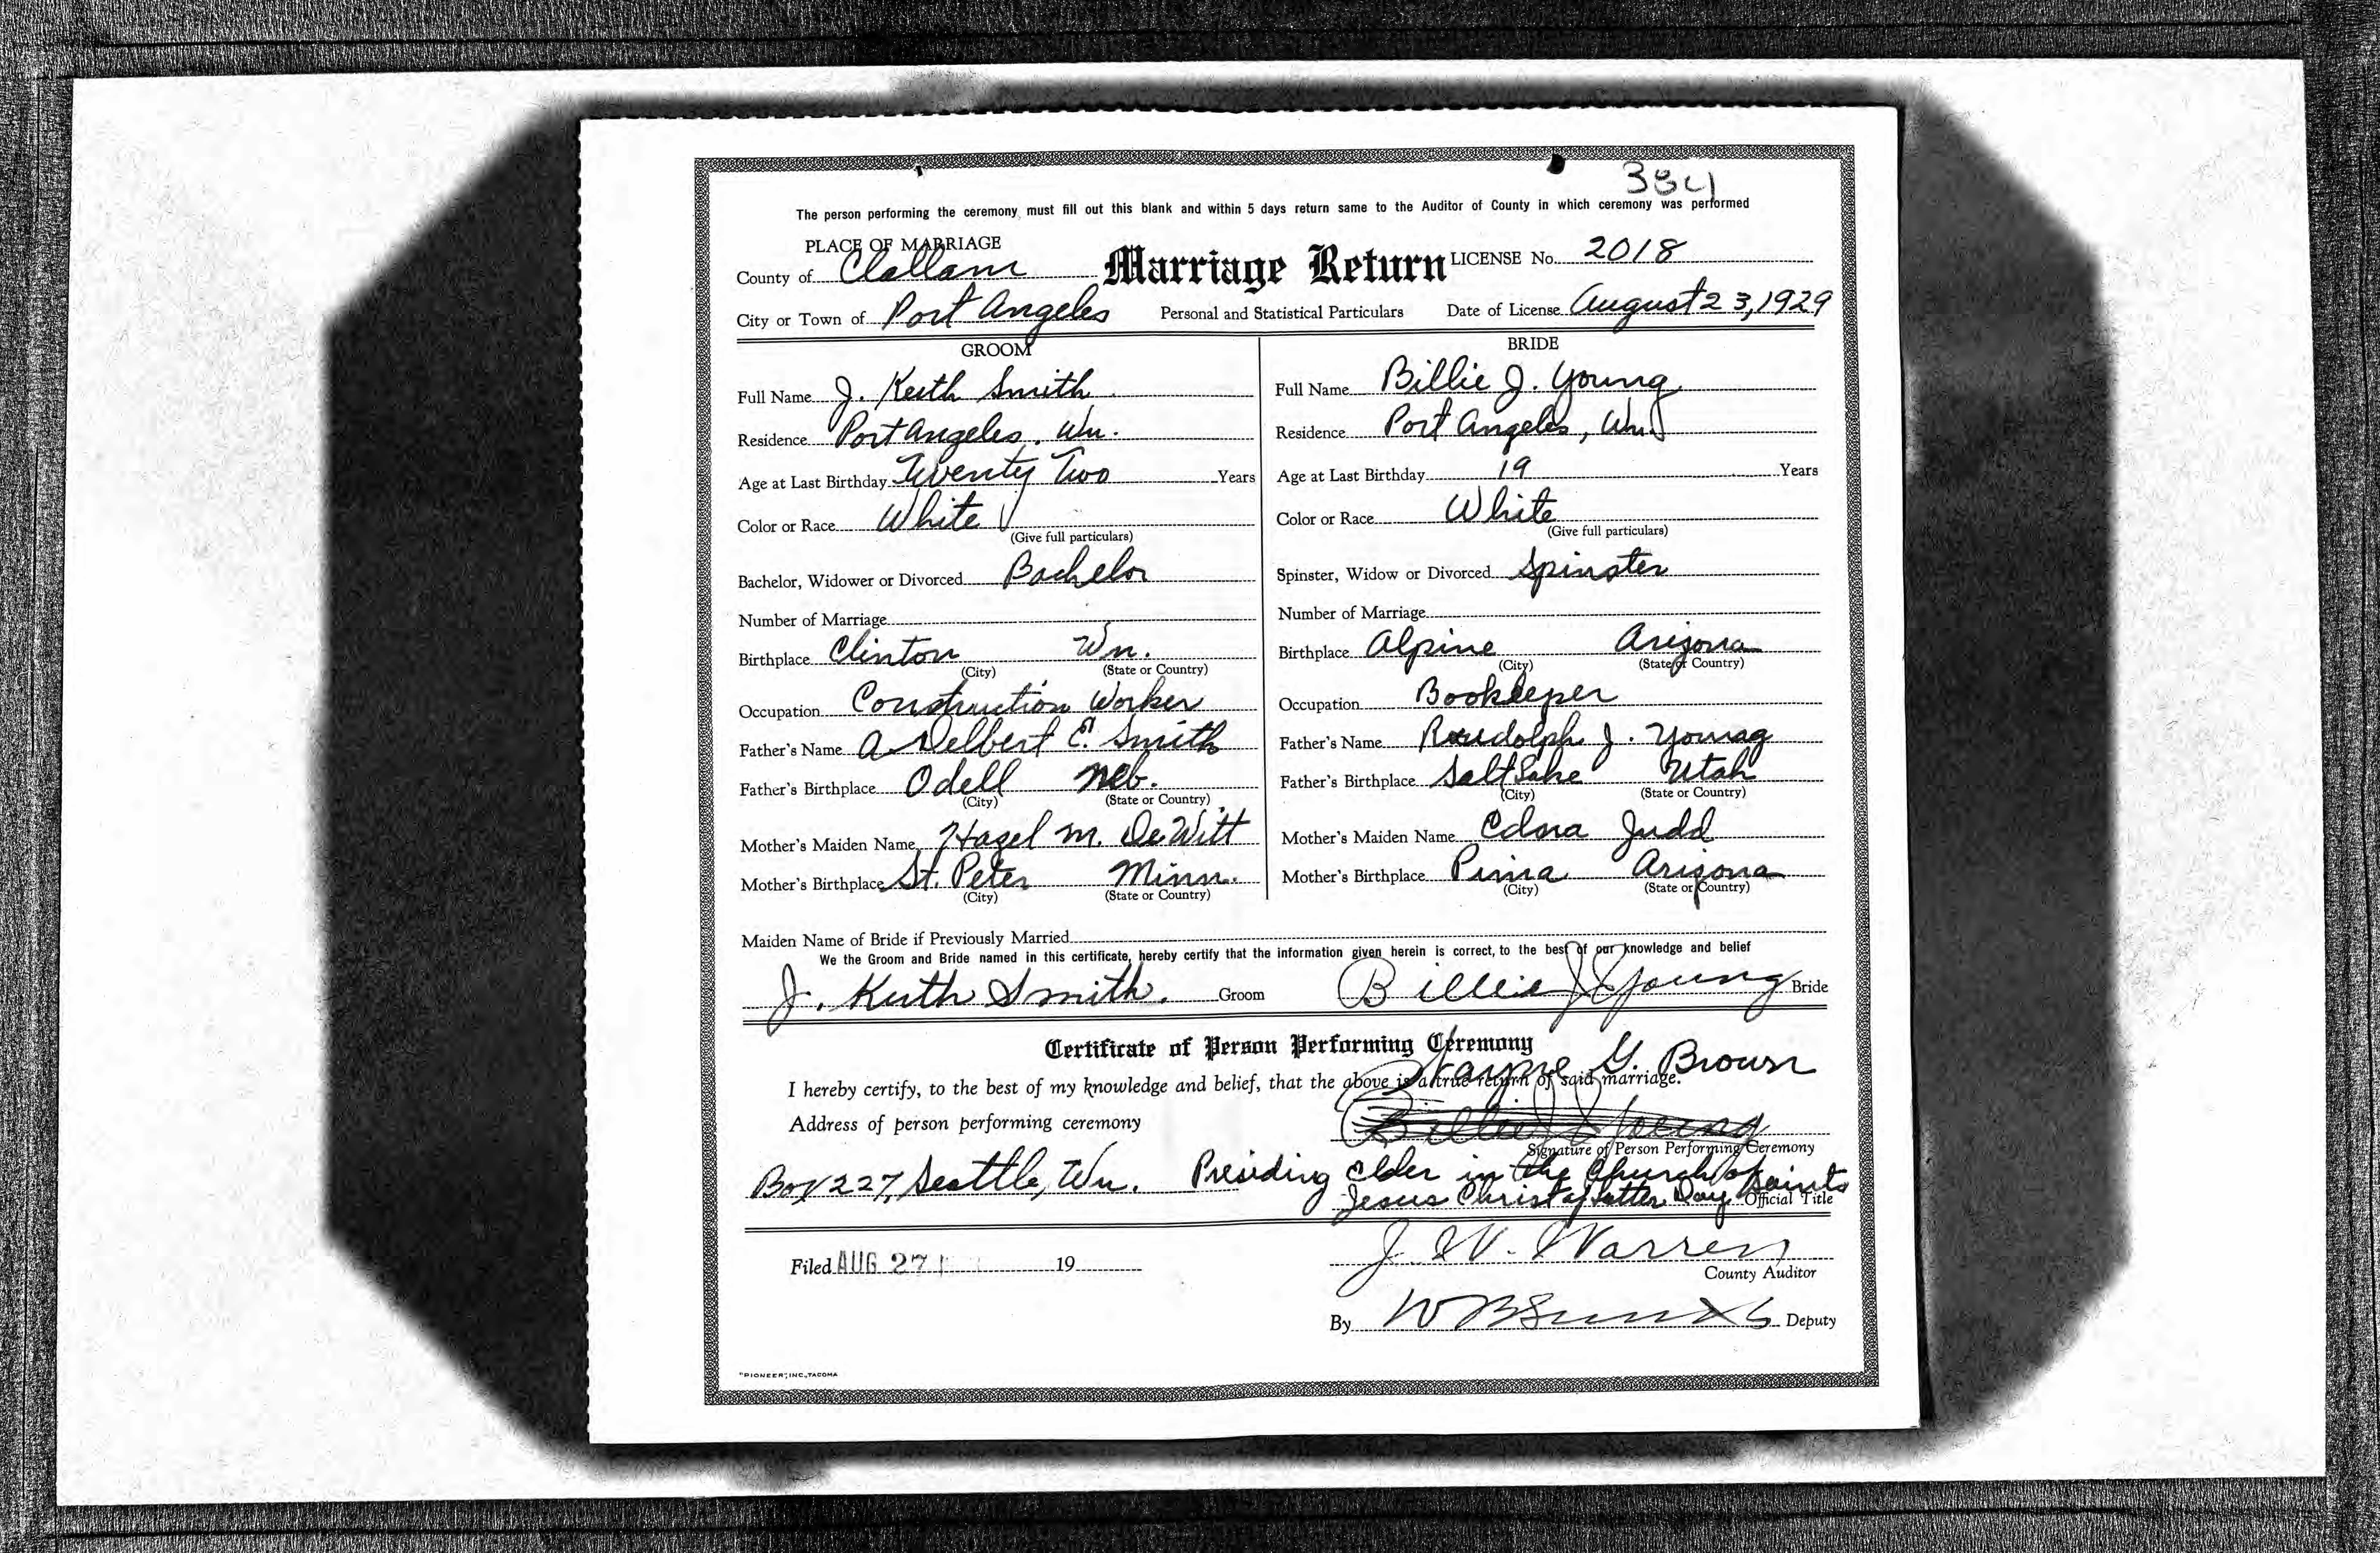 334
The person performing the ceremony must fill out this blank and within 5 days return same to the Auditor of County in which ceremony was performed
PLACE OF MARRIAGE
County of Clallam Marriage Return LICENSE No. 2018
City or Town of Port Angeles Personal and Statistical Particulars Date of License August 23, 1929
GROOM
Full Name J. Keith Smith
Residence Port Angeles, Wn.
Age at Last Birthday Twenty Two Years
Color or Race White
(Give full particulars)
Bachelor, Widower or Divorced Bachelor
Number of Marriage
Birthplace Clinton Wn.
(City) (State or Country)
Occupation Construction Worker
Father's Name A Delbert E. Smith
Father's Birthplace Odell Neb.
(City) (State or Country)
Mother's Maiden Name Hazel M. DeWitt
Mother's Birthplace St. Peter Minn.
(City) (State or Country)
BRIDE
Full Name Billie J. Young
Residence Port Angeles, Wn.
Age at Last Birthday 19 Years
Color or Race White
(Give full particulars)
Spinster, Widow or Divorced Spinster
Number of Marriage
Birthplace Alpine Arizona
(City) (State or Country)
Occupation Bookkeeper
Father's Name Rudolph J. Young
Father's Birthplace Salt Lake Utah
(City) (State or Country)
Mother's Maiden Name Edna Judd
Mother's Birthplace Pima Arizona
(City) (State or Country)
Maiden Name of Bride if Previously Married
We the Groom and Bride named in this certificate, hereby certify that the information given herein is correct, to the best of our knowledge and belief
J. Keith Smith. Groom Billie J Young Bride
Certificate of Person Performing Ceremony
I hereby certify, to the best of my knowledge and belief, that the above is a true return of said marriage.
Wayne G. Brown
Address of person performing ceremony Billie J Young
Signature of Person Performing Ceremony
Box 227, Seattle, Wn. Presiding Elder in the Church of
Jesus Christ of Latter Day Saints Official Title
Filed AUG 27 19
J. W. Warren
County Auditor
By Deputy
"PIONEER", INC., TACOMA